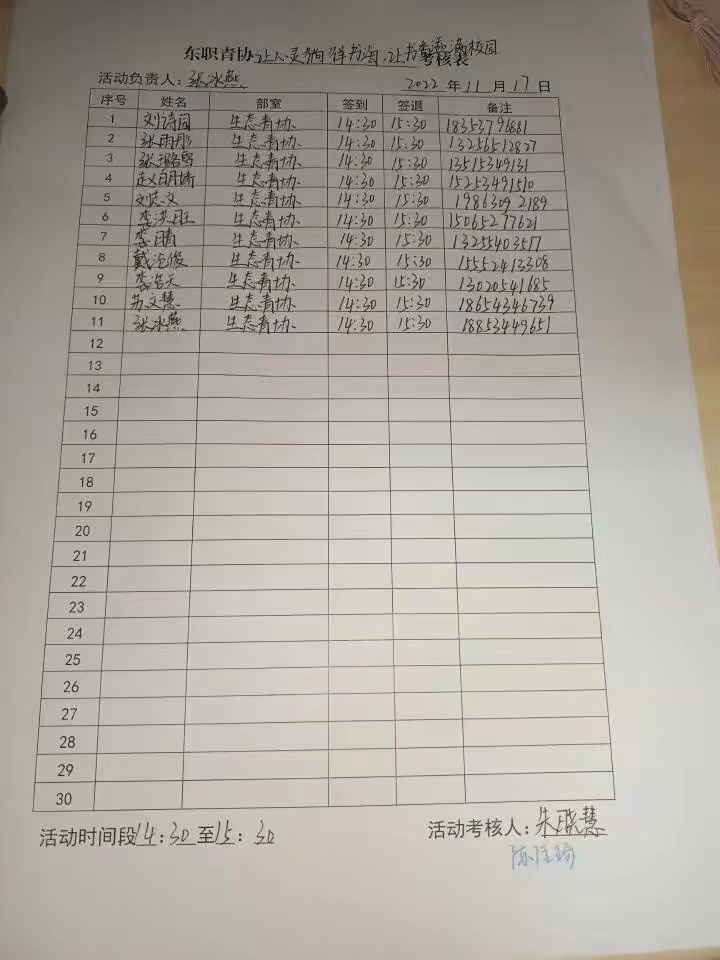 东职青协让心灵徜徉书海,让书香溢满校园考核表
活动负责人:张冰燕 2022年11月17日
序号 姓名 部室 签到 签退 备注
1 刘诗园 生态青协 14:30 15:30 18353796881
2 张雨彤 生态青协 14:30 15:30 13256512827
3 张璐雪 生态青协 14:30 15:30 13515349131
4 生态青协 14:30 15:30 15253491510
5 刘志文 生态青协 14:30 15:30 19863092189
6 李洪旺 生态青协 14:30 15:30 15065277621
7 李晴 生态青协 14:30 15:30 13255403517
8 戴沧俊 生态青协 14:30 15:30 15552413308
9 李浩天 生态青协 14:30 15:30 13020541685
10 苏文慧 生态青协 14:30 15:30 18654346739
11 张冰燕 生态青协 14:30 15:30 18853449651
12
13
14
15
16
17
18
19
20
21
22
23
24
25
26
27
28
29
30
活动时间段14:30至15:30 活动考核人:朱晓慧
陈佳琦